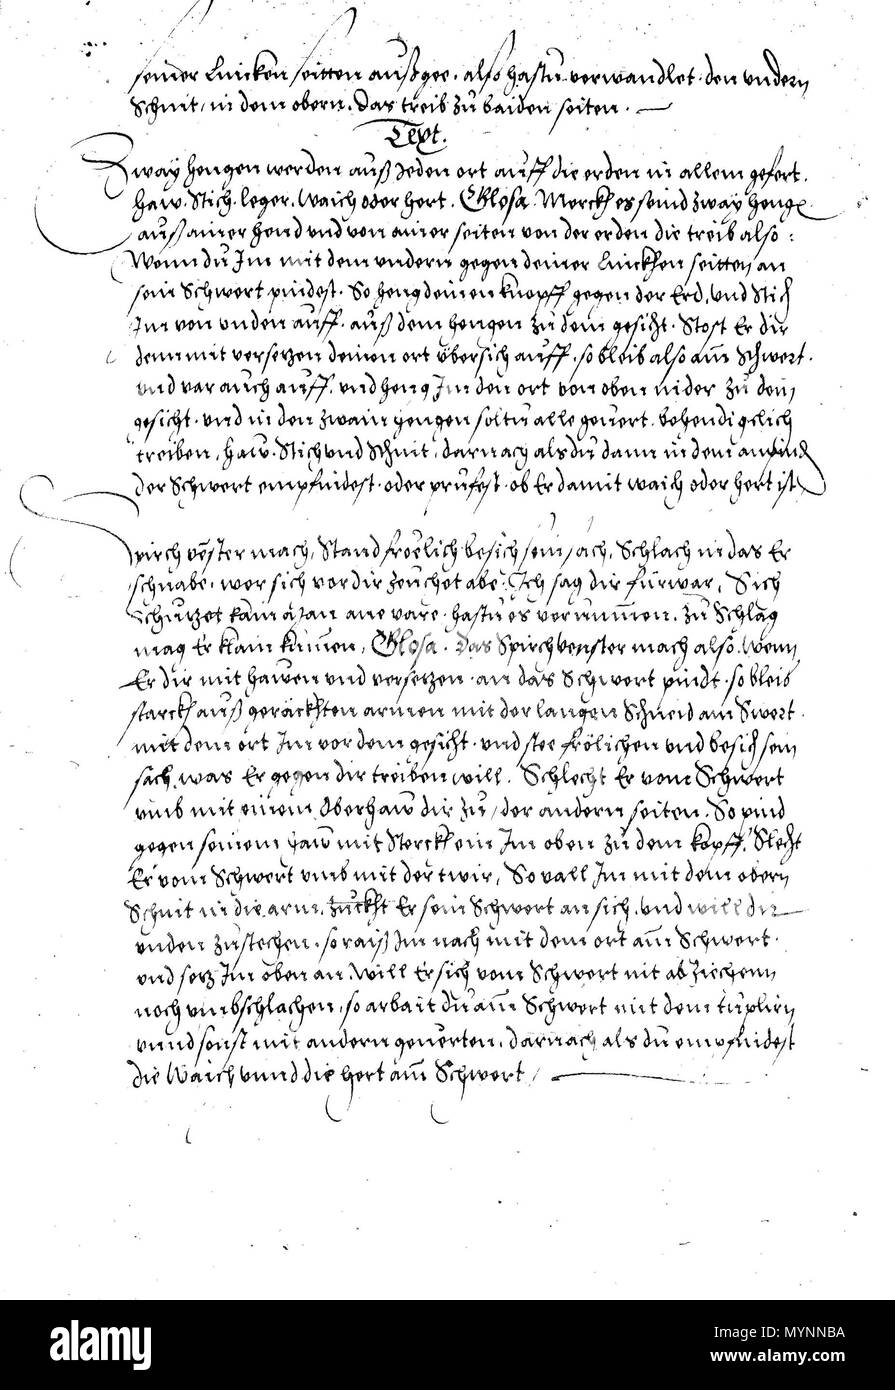 seiner Lincken seitten außgee. also hastu verwandlet. den undern
Schnit, in dem obern. das treib zu baiden seiten.
Text.
Zway hengen werden auß Jeden ort auff die erden in allem gefert.
Haw. Stich. leger. Waich oder hert. Glosa. Merckh es seind zway heng
auß ainer hend und von ainer seiten von der erden die treib also:
Wenn du Im mit dem undern gegen deiner Linckhen seitten an
sein Schwert pindest. So heng deinen knopff gegen der Erd. und Stich
Im von unden auff. auß dem hengen zu dem gesicht. Stost Er dir
dann mit versetzen deinen ort übersich auff. so bleib also am Schwert.
und var auch auff. und heng Im den ort von oben nider zu dem
gesicht. und in den zwain hengen soltu alle gevert. behendigclich
treiben, haw. Stich und Schnit, darnach als du dann in dem
der Schwert empfindest. oder prüfest. ob Er damit waich oder hert ist
vēster mach, Stand frölich besich sein sach, Schlach in das Er
schnabe. wer sich vor dir zeuchet abe. Ich sag dir fürwar, Sich
Schutzet kain man ane vare. hastu es vernumen. zu Schlag
mag Er klain kumen, Glosa. das Spirchvenster mach also. wenn
Er dir mit hawen und versetzen. an das Schwert pindt. so bleib
starckh auß geräckhten armen mit der langen Schneid am Swert.
mit dem ort Im vor dem gesicht. und stee frölichen und besich sein
sach, was Er gegen dir treiben will. Schlecht Er vom Schwert
umb mit einem Oberhaw dir zu, der andern seiten. So pind
gegen seinem haw mit Sterckh ein Im oben zu dem kopff. Slecht
Er vom Schwert umb mit der twir, So vall Im mit dem obern
Schnit in die arm. zuckht Er sein Schwert an sich. und will dir
unden zustechen. so raiß Im nach mit dem ort am Schwert.
und setz Im oben an. Will Er sich vom Schwert nit abziechenn
noch umbschlachen, so arbait du am Schwert mit dem duplirn
unnd sonst mit andern geverten, darnach als du empfindest
die Waich unnd die hert am Schwert
alamy
Image ID: MYNNBA
www.alamy.com